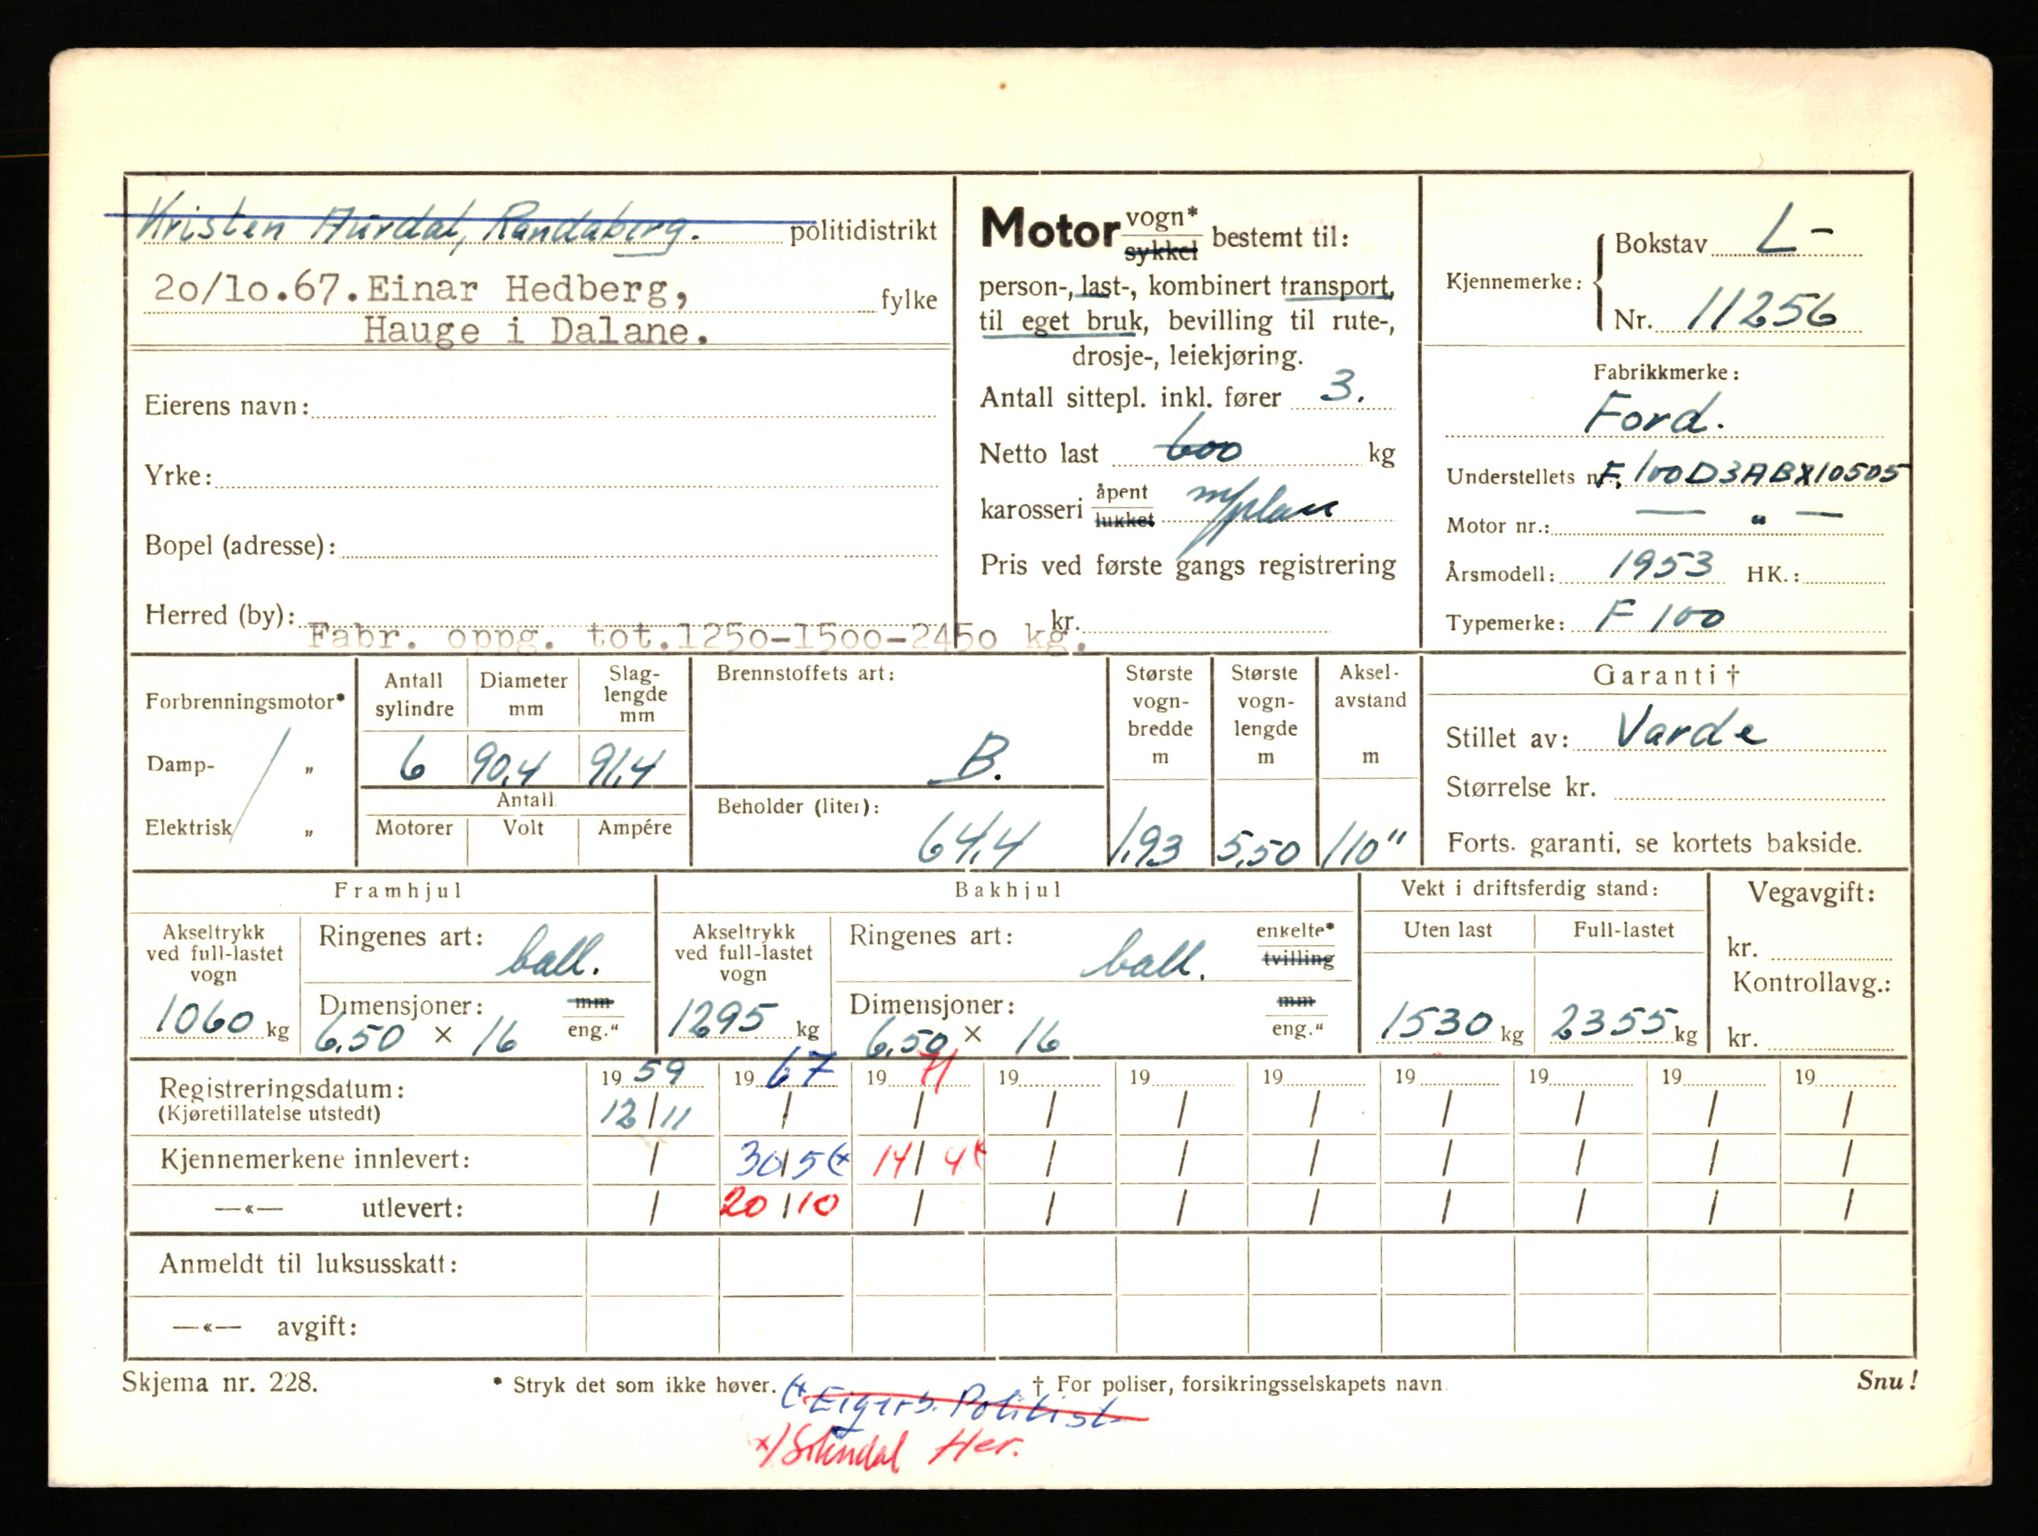 Kristen Aurdal, Randaberg. politidistrikt
20/10.67. Einar Hedberg, fylke
Hauge i Dalane.
Eierens navn:
Yrke:
Bopel (adresse):
Herred (by):
Fabr. oppg. tot.1250-1500-2450 kg.
Motor vogn* sykkel bestemt til:
person-, last-, kombinert transport,
til eget bruk, bevilling til rute-,
drosje-, leiekjøring.
Antall sittepl. inkl. fører 3.
Netto last 600 kg
karosseri åpent lukket m/plan
Pris ved første gangs registrering
kr.
Kjennemerke: Bokstav L-
Nr. 11256
Fabrikkmerke:
Ford.
Understellets nr. F.100D3ABX10505
Motor nr.: — „ —
Årsmodell: 1953 HK.:
Typemerke: F 100
Forbrenningsmotor*
Damp- „
Elektrisk „
Antall sylindre 6
Diameter mm 90,4
Slag-lengde mm 91,4
Antall
Motorer Volt Ampére
Brennstoffets art:
B.
Beholder (liter):
64,4
Største vogn-bredde m 1,93
Største vogn-lengde m 5,50
Aksel-avstand m 110"
Garanti †
Stillet av: Varde
Størrelse kr.
Forts. garanti, se kortets bakside.
Framhjul
Akseltrykk ved full-lastet vogn 1060 kg
Ringenes art: ball.
Dimensjoner: mm
6,50 × 16 eng."
Bakhjul
Akseltrykk ved full-lastet vogn 1295 kg
Ringenes art: ball. enkelte* tvilling
Dimensjoner: mm
6,50 × 16 eng."
Vekt i driftsferdig stand:
Uten last Full-lastet
1530 kg 2355 kg
Vegavgift:
kr.
Kontrollavg.:
kr.
Registreringsdatum: 19 59 19 67 19 71 19 19 19 19 19 19 19
(Kjøretillatelse utstedt) 12/11 / / / / / / / / /
Kjennemerkene innlevert: / 30/5 (x 14/4 (x / / / / / / /
—«— utlevert: / 20/10 / / / / / / / /
Anmeldt til luksusskatt:
—«— avgift:
Skjema nr. 228. * Stryk det som ikke høver. † For poliser, forsikringsselskapets navn Snu!
(x Eigers. Politist
x) Sokndal Her.